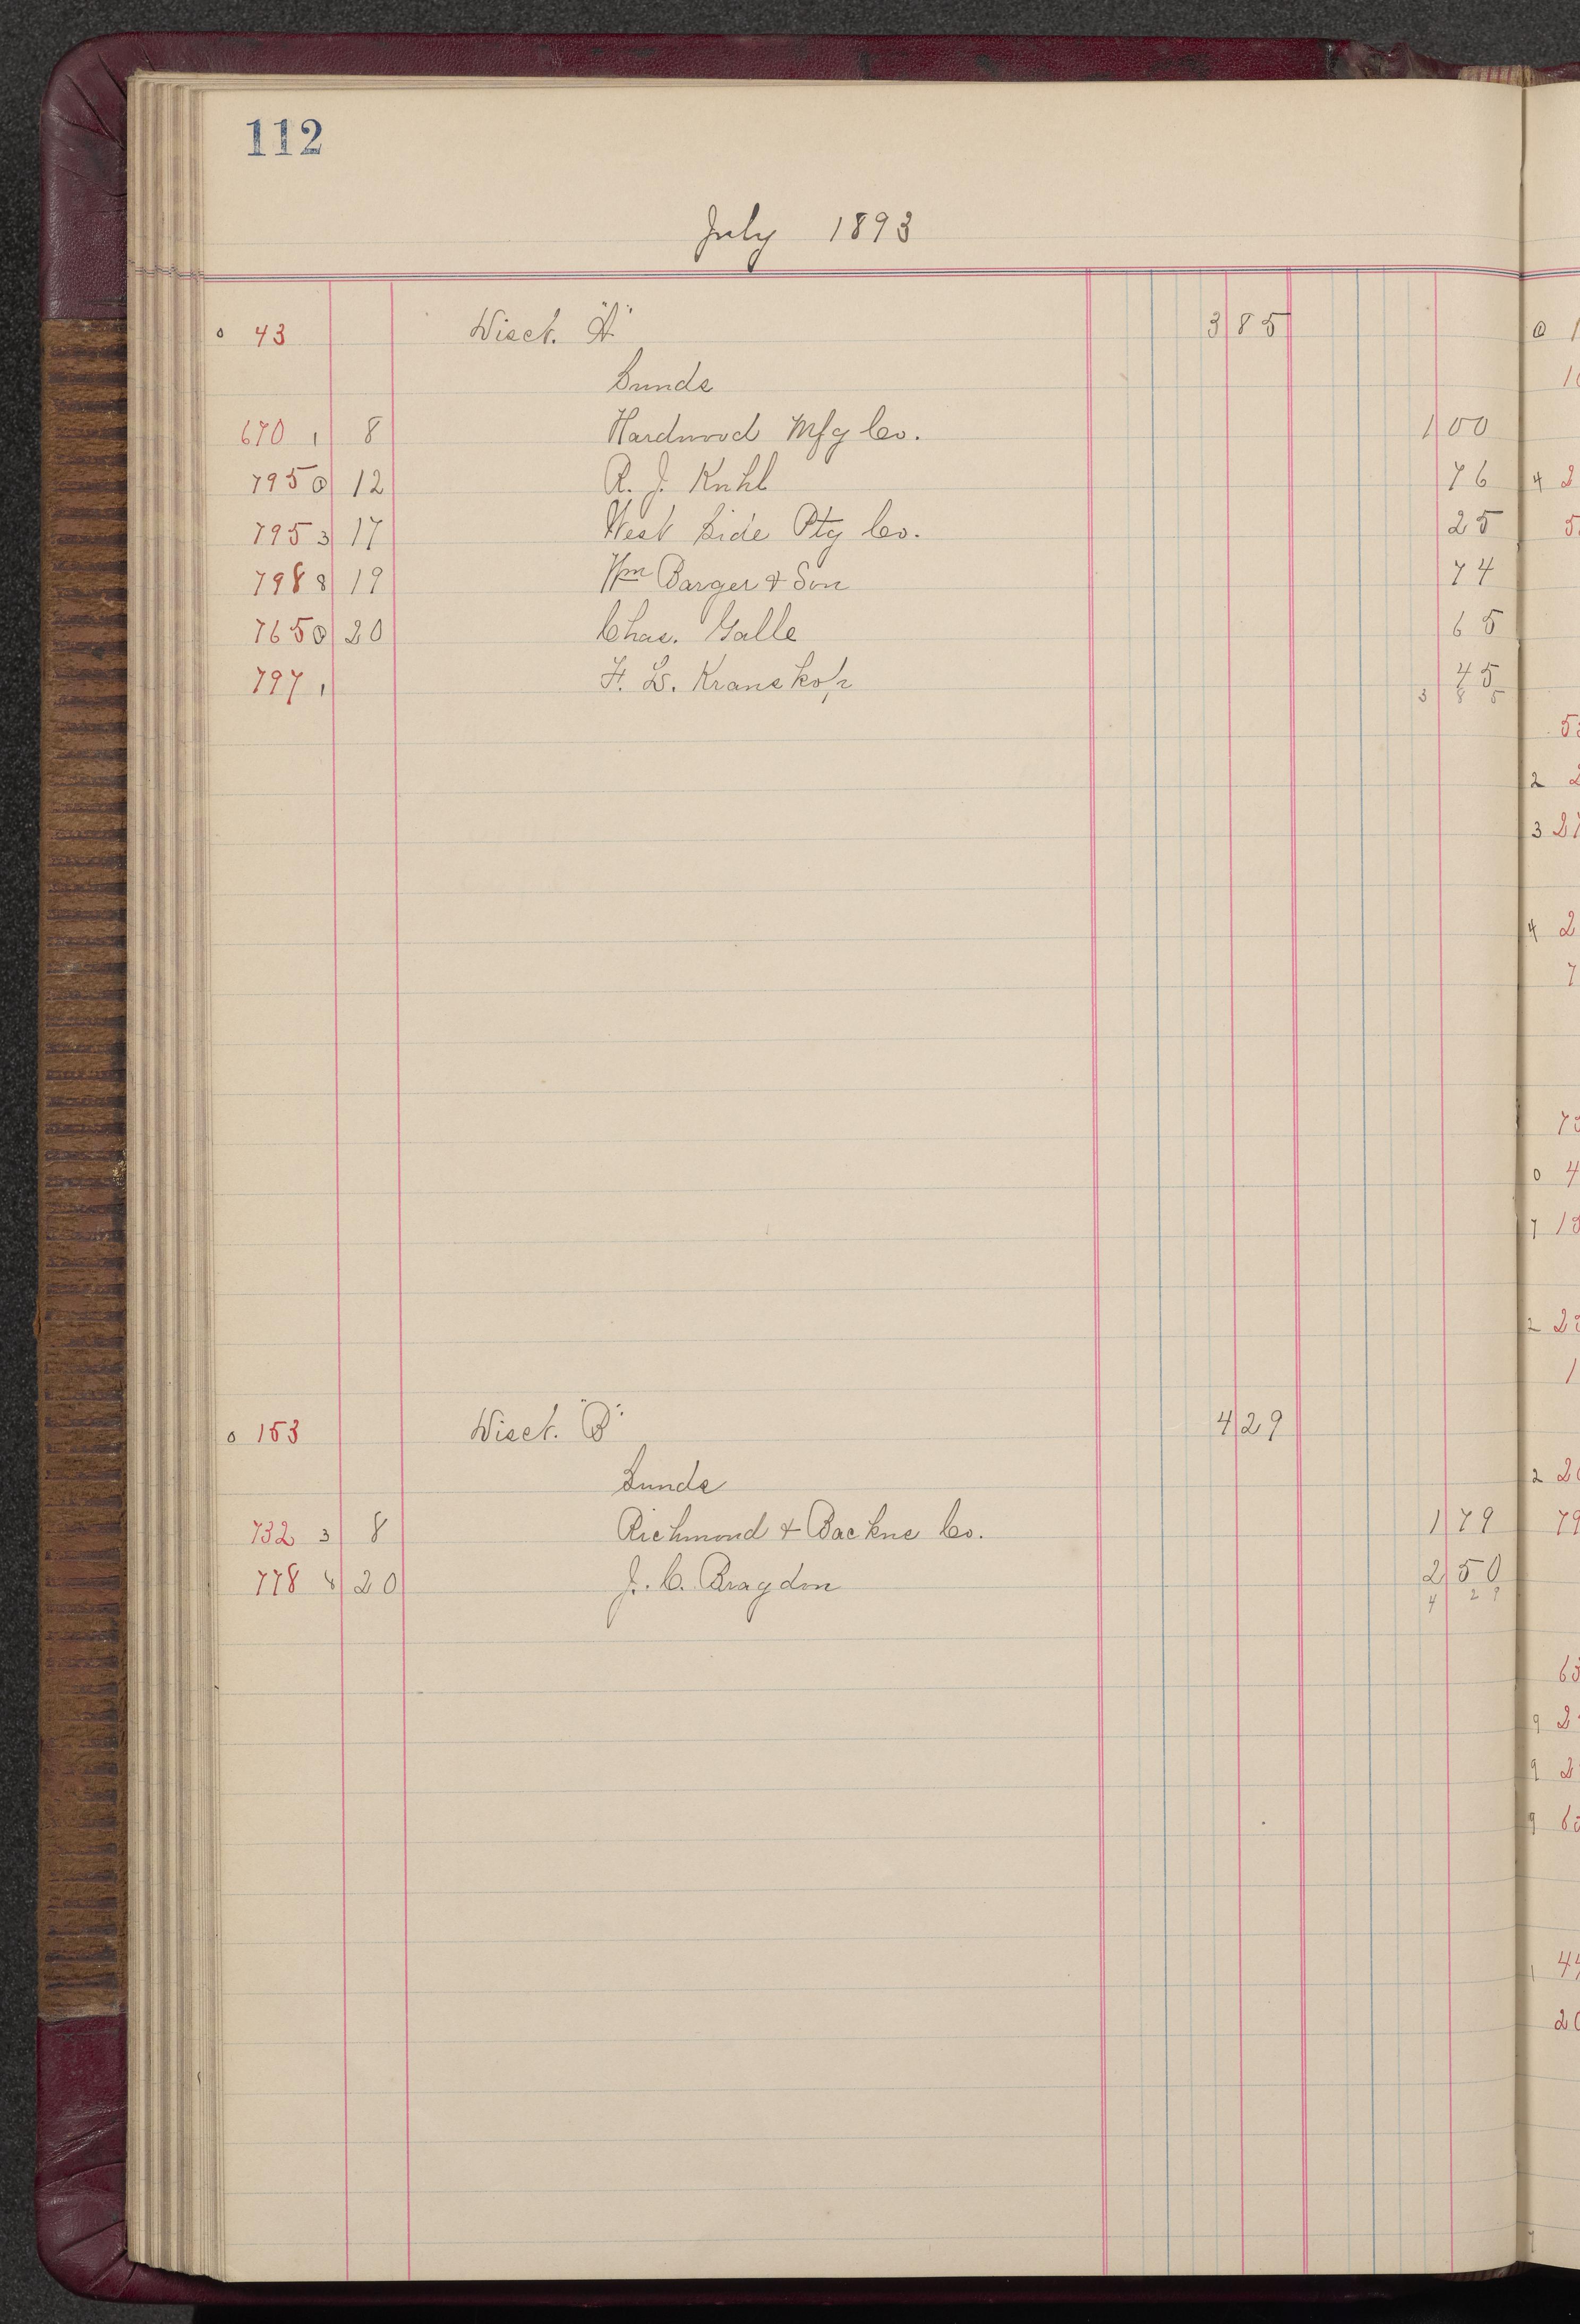 112
July 1893
0 43 Disct. "A" 3 85
Sunds
670 1 8 Hardwood Mfg Co. 1 00
795 0 12 R. J. Kuhl 76
795 3 17 West Side Ptg Co. 25
798 8 19 Wm Barger & Son 74
765 0 20 Chas. Galle 65
797 1 F. L. Kranskop 45
3 8 5
0 153 Disct. "B" 4 29
Sunds
732 3 8 Richmond & Backus Co. 1 79
778 4 20 J. C. Bragdon 2 50
4 2 9